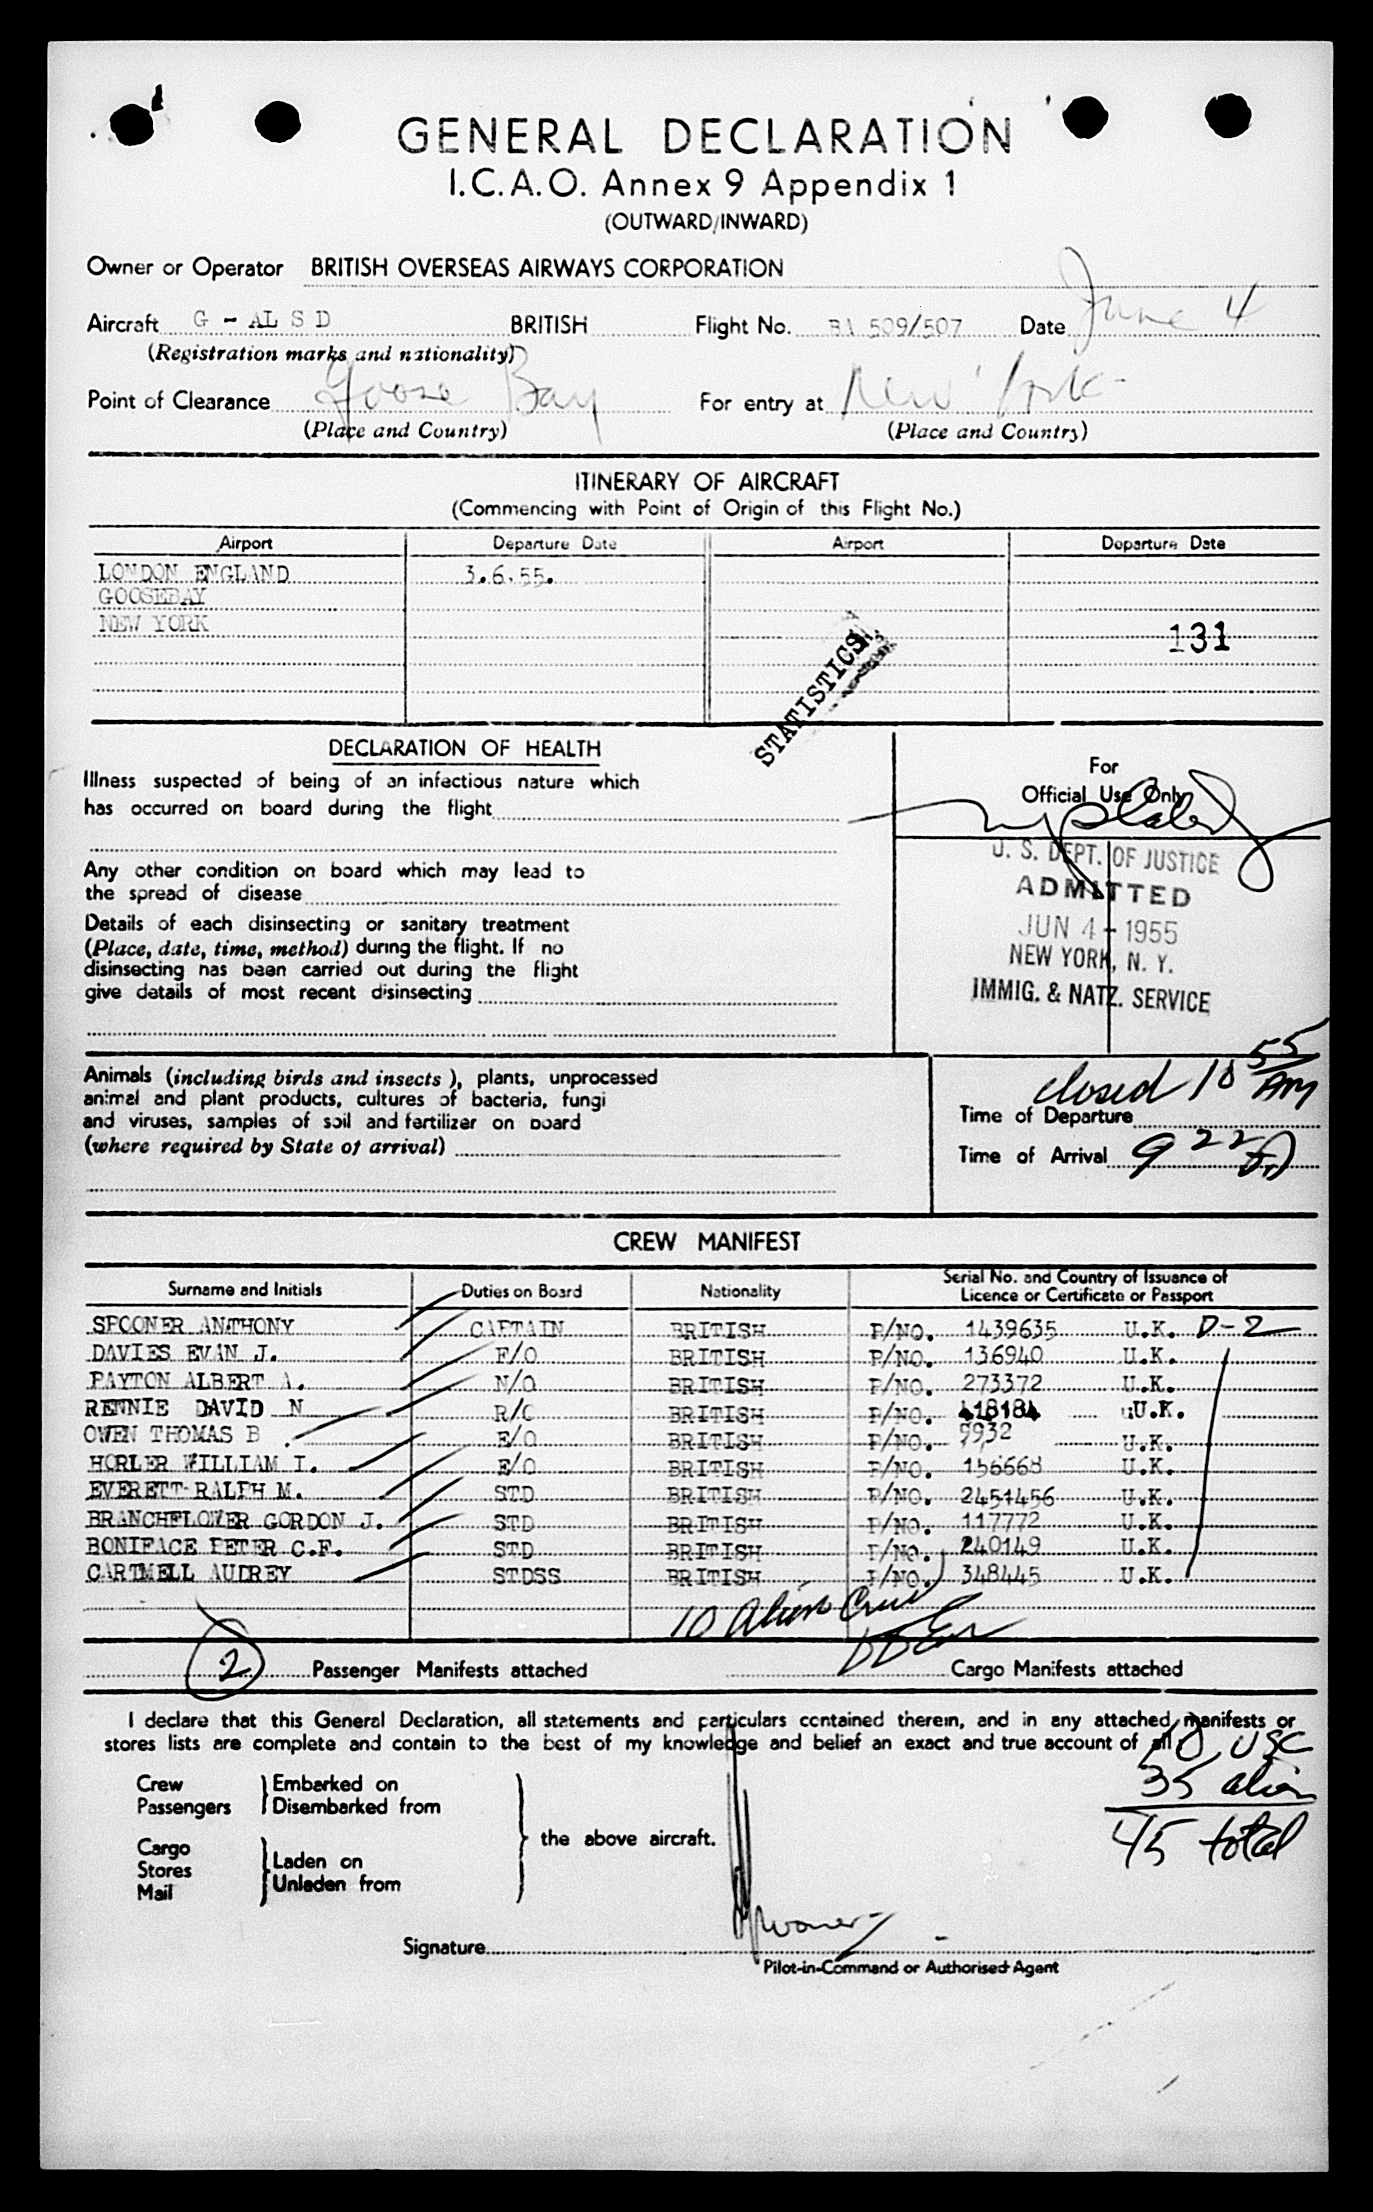 GENERAL DECLARATION
I.C.A.O. Annex 9 Appendix 1
(OUTWARD/INWARD)
Owner or Operator BRITISH OVERSEAS AIRWAYS CORPORATION
Aircraft G - AL S D BRITISH Flight No. BA 509/507 Date June 4
(Registration marks and nationality)
Point of Clearance Goose Bay For entry at New York
(Place and Country) (Place and Country)
ITINERARY OF AIRCRAFT
(Commencing with Point of Origin of this Flight No.)
Airport Departure Date Airport Departure Date
LONDON ENGLAND 3.6.55.
GOOSEBAY
NEW YORK
131
STATISTICS
DECLARATION OF HEALTH
Illness suspected of being of an infectious nature which
has occurred on board during the flight
Any other condition on board which may lead to
the spread of disease
Details of each disinsecting or sanitary treatment
(Place, date, time, method) during the flight. If no
disinsecting has been carried out during the flight
give details of most recent disinsecting
For
Official Use Only
U. S. DEPT. OF JUSTICE
ADMITTED
JUN 4 - 1955
NEW YORK, N. Y.
IMMIG. & NATZ. SERVICE
Animals (including birds and insects), plants, unprocessed
animal and plant products, cultures of bacteria, fungi
and viruses, samples of soil and fertilizer on board
(where required by State of arrival)
closed 10 55 AM
Time of Departure
Time of Arrival 9 22
CREW MANIFEST
Surname and Initials Duties on Board Nationality Serial No. and Country of Issuance of
Licence or Certificate or Passport
SPOONER ANTHONY CAPTAIN BRITISH P/NO. 1439635 U.K. D-2
DAVIES EVAN J. F/O BRITISH P/NO. 136940 U.K.
PAYTON ALBERT A. N/O BRITISH P/NO. 273372 U.K.
RENNIE DAVID N R/O BRITISH P/NO. 418184 U.K.
OWEN THOMAS B . E/O BRITISH P/NO. 9932 U.K.
HORLER WILLIAM I. E/O BRITISH P/NO. 156668 U.K.
EVERETT RALPH M. STD BRITISH P/NO. 2451456 U.K.
BRANCHFLOWER GORDON J. STD BRITISH P/NO. 117772 U.K.
BONIFACE PETER C.F. STD BRITISH P/NO. 240149 U.K.
CARTMELL AUDREY STDSS BRITISH P/NO. 348445 U.K.
10 Alien Crew
2 Passenger Manifests attached Cargo Manifests attached
I declare that this General Declaration, all statements and particulars contained therein, and in any attached manifests or
stores lists are complete and contain to the best of my knowledge and belief an exact and true account of all
10 USC
35 alien
45 total
Crew Embarked on
Passengers Disembarked from
the above aircraft.
Cargo
Stores Laden on
Mail Unladen from
Signature Spooner
Pilot-in-Command or Authorised Agent